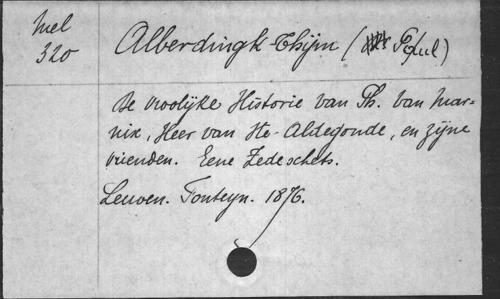 Mel
320
Alberdingk-Thijm (Paul)
De vroolijke Historie van Ph. van Mar-
nix, Heer van Ste-Aldegonde, en zijne
vrienden. Eene Zedeschets.
Leuven. Fonteyn. 1876.